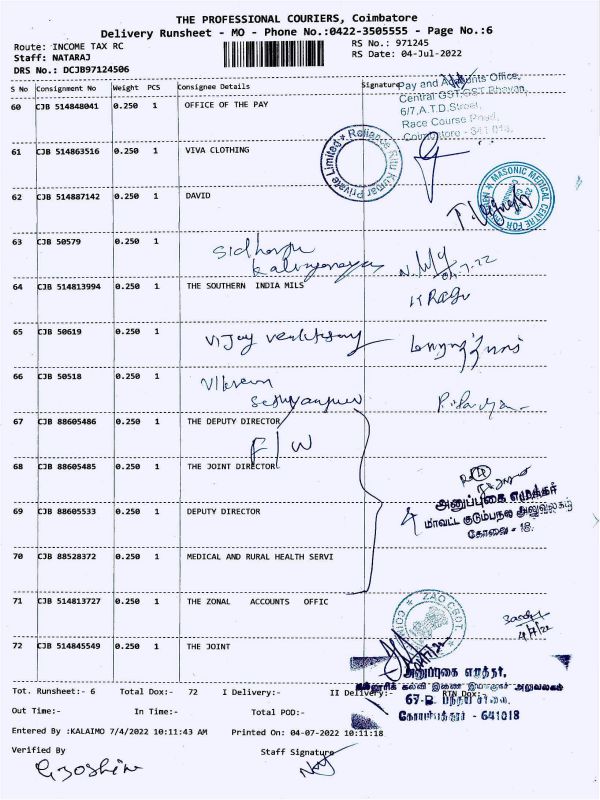 THE PROFESSIONAL COURIERS, Coimbatore
Delivery Runsheet - MO - Phone No.:0422-3505555 - Page No.:6
Route: INCOME TAX RC
RS No.: 971245
Staff: NATARAJ
RS Date: 04-Jul-2022
DRS No.: DCJB97124506
S No Consignment No Weight PCS Consignee Details Signature
Pay and Accounts Office,
60 CJB 514848041 0.250 1 OFFICE OF THE PAY
Central GST,GST Bhavan,
6/7,A.T.D.Street,
Race Course Road,
Coimbatore - 641 018.
61 CJB 514863516 0.250 1 VIVA CLOTHING
Reliance Ritu Kumar Private Limited
62 CJB 514887142 0.250 1 DAVID
MASONIC MEDICAL CENTRE FOR
63 CJB 50579 0.250 1
Sidharth
64 CJB 514813994 0.250 1 THE SOUTHERN INDIA MILS
Ragu
65 CJB 50619 0.250 1 Vijay
66 CJB 50518 0.250 1
67 CJB 88605486 0.250 1 THE DEPUTY DIRECTOR
F/W
68 CJB 88605485 0.250 1 THE JOINT DIRECTOR
அனுப்புகை எழுத்தர்
69 CJB 88605533 0.250 1 DEPUTY DIRECTOR
மாவட்ட குடும்பநல அலுவலகம்
கோவை - 18.
70 CJB 88528372 0.250 1 MEDICAL AND RURAL HEALTH SERVI
71 CJB 514813727 0.250 1 THE ZONAL ACCOUNTS OFFIC
ZAO CBDT.
4/7/22
72 CJB 514845549 0.250 1 THE JOINT
அனுப்புகை எழுத்தர்,
கல்லூரிக் கல்வி இணை இயக்குநர் அலுவலகம்
Tot. Runsheet:- 6 Total Dox:- 72 I Delivery:- II Delivery:- RTN Dox:-
67-B, பந்தய சாலை,
கோயம்புத்தூர் - 641018
Out Time:- In Time:- Total POD:-
Entered By :KALAIMO 7/4/2022 10:11:43 AM Printed On: 04-07-2022 10:11:18
Verified By Staff Signature